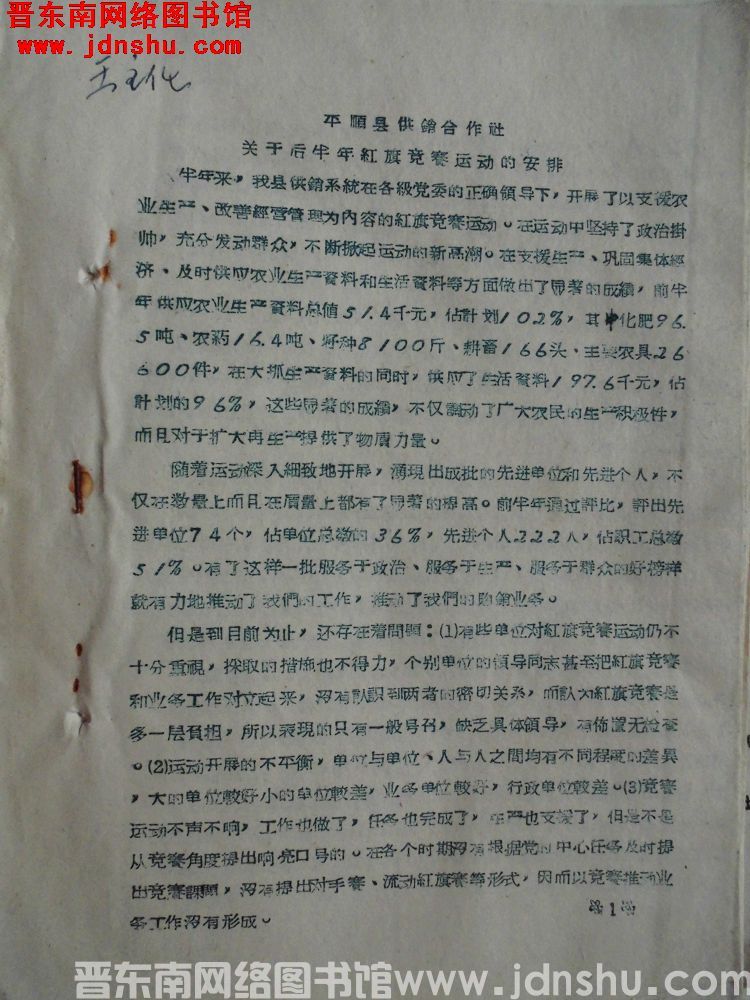 晋东南网络图书馆
www.jdnshu.com
平順县供銷合作社
关于后半年紅旗竞賽运动的安排
半年来，我县供銷系統在各級党委的正确領导下，开展了以支援农
业生产、改善經营管理为內容的紅旗竞賽运动。在运动中坚持了政治掛
帅，充分发动群众，不断掀起运动的新高潮。在支援生产、巩固集体經
济、及时供应农业生产資料和生活資料等方面做出了显著的成績，前半
年供应农业生产資料总值51.4千元，佔計划102%，其中化肥96.
5吨、农药16.4吨、籽种8100斤、耕畜166头、主要农具26
600件，在大抓生产資料的同时，供应了生活資料197.6千元，佔
計划的96%，这些显著的成績，不仅鼓动了广大农民的生产积极性，
而且对于扩大再生产提供了物质力量。
随着运动深入細致地开展，湧現出成批的先进单位和先进个人，不
仅在数量上而且在質量上都有了显著的提高。前半年通过評比，評出先
进单位74个，佔单位总数的36%，先进个人222人，佔职工总数
51%。有了这样一批服务于政治、服务于生产、服务于群众的好榜样
就有力地推动了我們的工作，推动了我們的购銷业务。
但是到目前为止，还存在着問題：(1)有些单位对紅旗竞賽运动仍不
十分重視，採取的措施也不得力，个别单位的領导同志甚至把紅旗竞賽
和业务工作对立起来，沒有認識到两者的密切关系，而認为紅旗竞賽是
多一层負担，所以表現的只有一般号召，缺乏具体領导，有佈置无检查
。(2)运动开展的不平衡，单位与单位、人与人之間均有不同程度的差異
，大的单位較好小的单位較差，业务单位較好，行政单位較差。(3)竞賽
运动不声不响，工作也做了，任务也完成了，生产也支援了，但是不是
从竞賽角度提出响亮口号的。在各个时期沒有根据党的中心任务及时提
出竞賽課題，沒有提出对手賽、流动紅旗賽等形式，因而以竞賽推动业
务工作沒有形成。
第1页
晋东南网络图书馆www.jdnshu.com